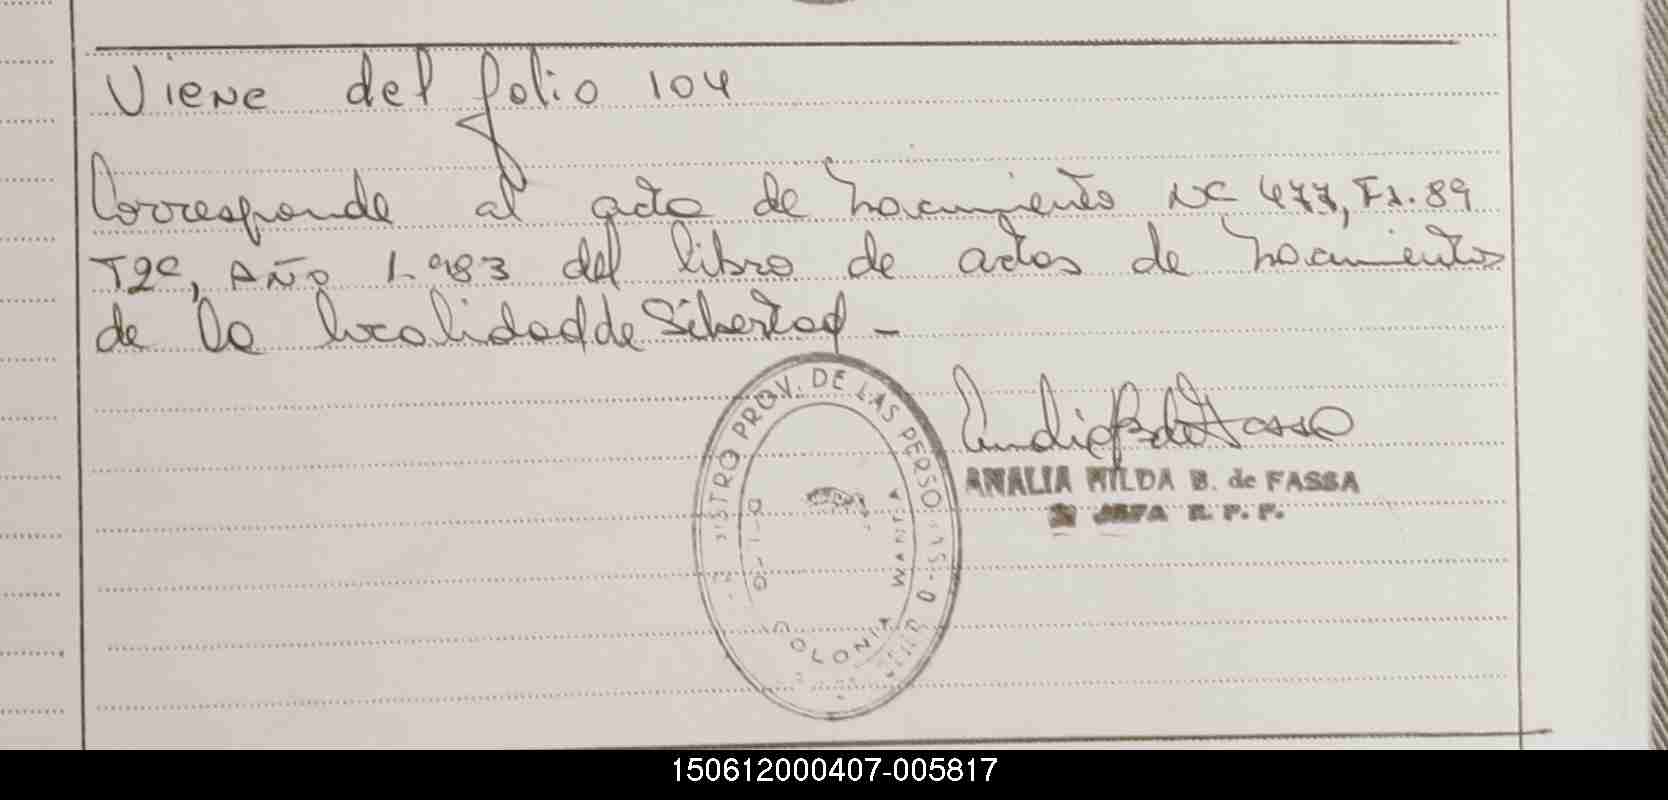 Viene del folio 104
Corresponde al acta de nacimiento Nº 477, Fº. 89
T2º, AÑO 1.983 del libro de actas de nacimientos
de la localidad de Libertad -
ANALIA HILDA B. de FASSA
JEFA R. P. P.
PROV. DE LAS PERSONAS
COLONIA WANDA
150612000407-005817